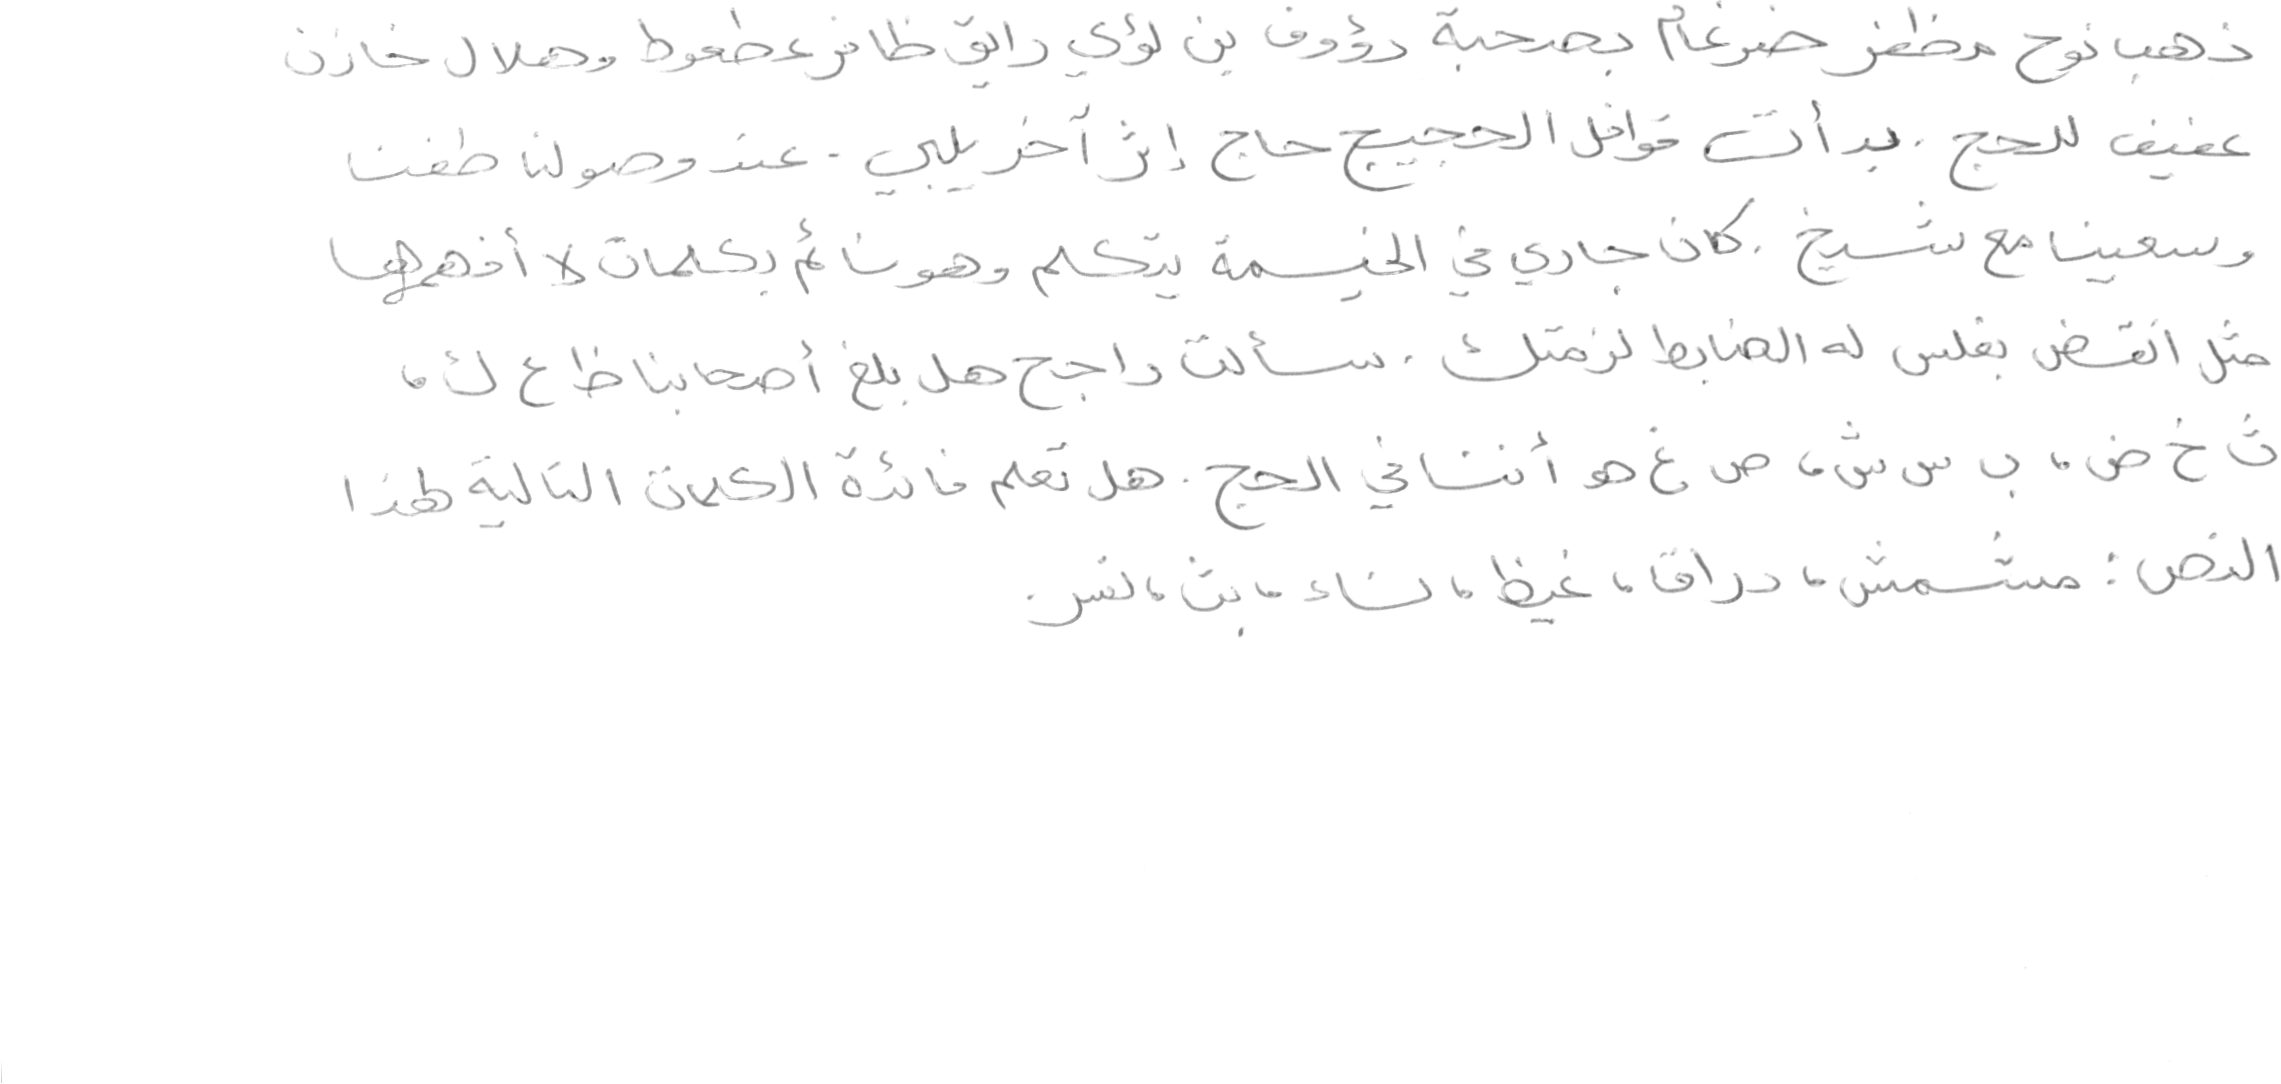 ذهب نوح مظفر ضرغام بصحبة رؤوف بن لؤي رايق ظافر عطعوط وهلال خازن
عفيف للحج . بدأت قوافل الحجيج حاج إثر آخر يلبي . عند وصولنا طفنا
وسعينا مع شيخ . كان جاري في الخيمة يتكلم وهو نائم بكلمات لا أفهمها
مثل انقض بفلس له الضابط لزمتك . سألت راجح هل بلغ أصحابنا ظ ع ك ،
ث خ ض ، ب س ش ، ص غ هو أننا في الحج . هل تعلم فائدة الكلمات التالية لهذا
النص : مشمش ، دراق ، غيظ ، نساء ، بث ، نسر .